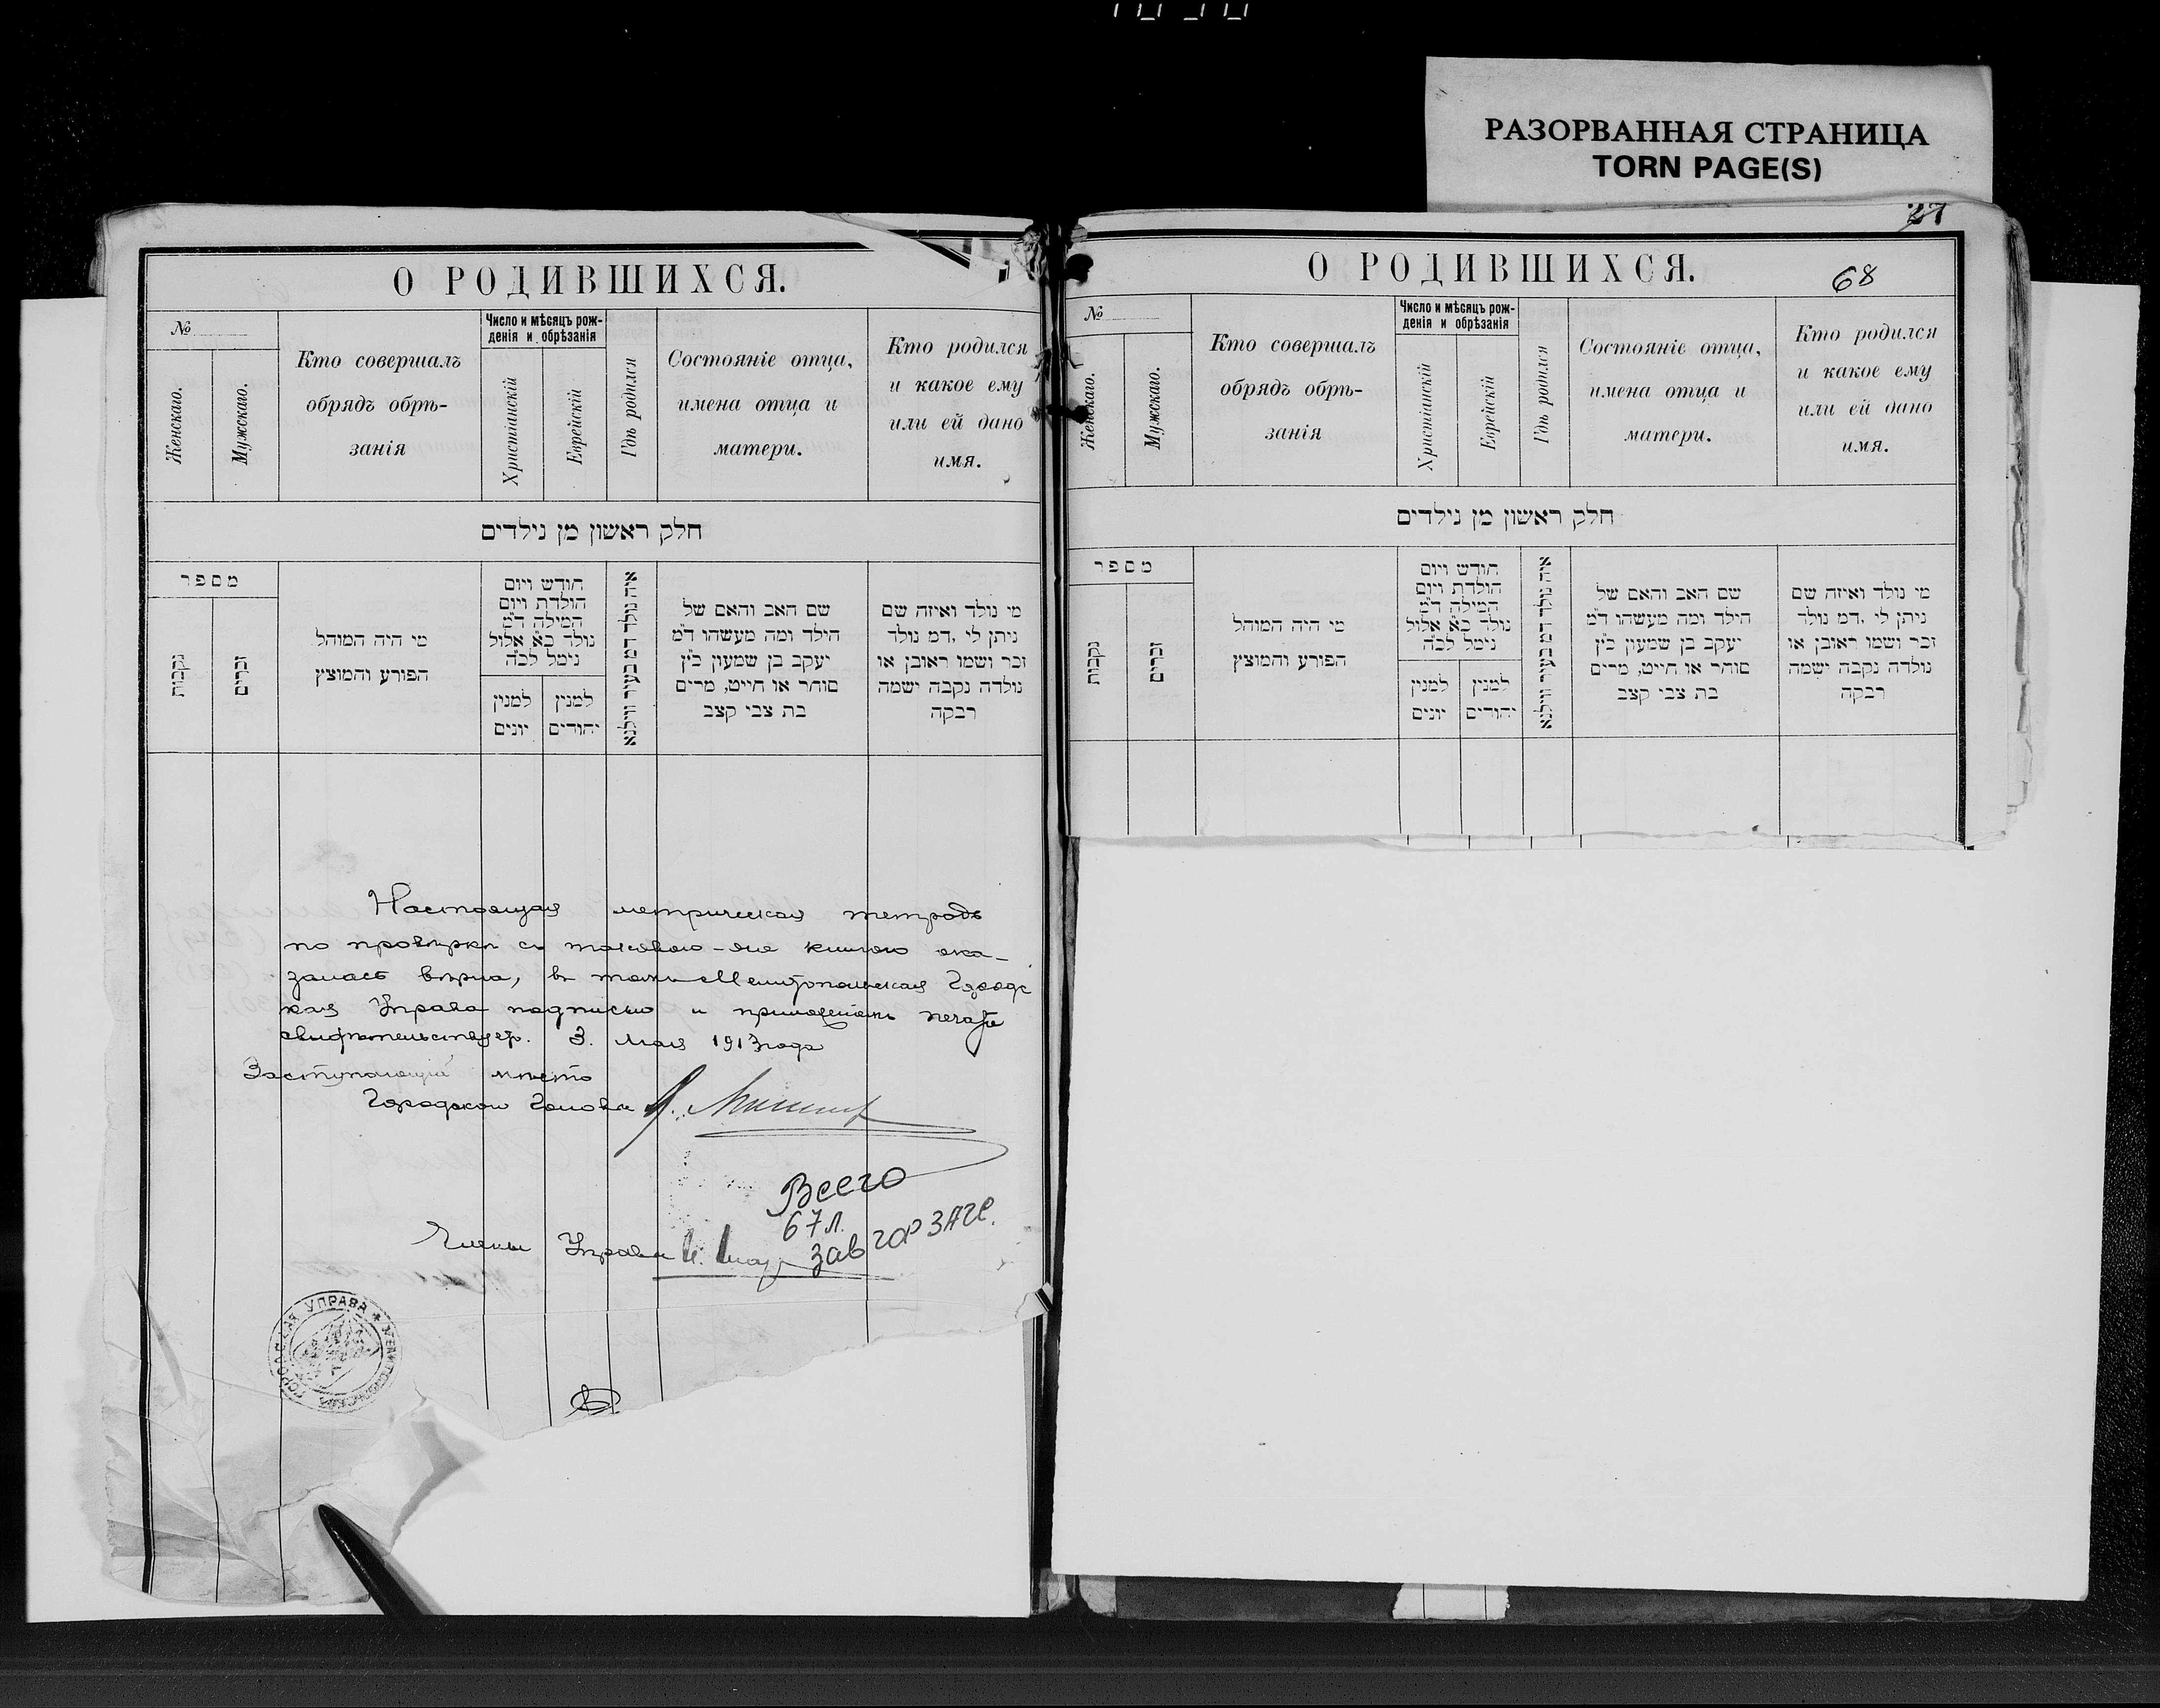 РАЗОРВАННАЯ СТРАНИЦА
TORN PAGE(S)
О РОДИВШИХСЯ.
№
Женскаго.
Мужскаго.
Кто совершалъ
обрядъ обрѣ-
занія
Число и мѣсяцъ рож-
денія и обрѣзанія
Христіанскій
Еврейскій
Гдѣ родился
Состояніе отца,
имена отца и
матери.
Кто родился
и какое ему
или ей дано
имя.
חלק ראשון מן נילדים
מספר
נקבות
זכרים
מי היה המוהל
הפורע והמוצץ
חודש ויום
הולדת ויום
המילה ד״מ
נולד כ״א אלול
נימל לכ״ה
למנין
יונים
למנין
יהודים
איה נולד דמ בעיר ווילנא
שם האב והאם של
הילד ומה מעשהו ד״מ
יעקב בן שמעון כ״ץ
סוחר או חייט, מרים
בת צבי קצב
מי נולד ואיזה שם
ניתן לי, דמ נולד
זכר ושמו ראובן או
נולדה נקבה ישמה
רבקה
Настоящая метрическая тетрадь
по провѣркѣ съ таковою-же книгою ока-
залась вѣрна, въ томъ Мелитопольская Городс
кая Управа подписью и приложеніемъ печати
свидѣтельствуетъ. 3. Мая 1913 года
Заступающій мѣсто
Городского Головы
Всего
67 л.
Завгорзагс.
Члены Управы
ГОРОДСКАЯ УПРАВА * МЕЛИТОПОЛЬСКАЯ
27
О РОДИВШИХСЯ.
68
№
Женскаго.
Мужскаго.
Кто совершалъ
обрядъ обрѣ-
занія
Число и мѣсяцъ рож-
денія и обрѣзанія
Христіанскій
Еврейскій
Гдѣ родился
Состояніе отца,
имена отца и
матери.
Кто родился
и какое ему
или ей дано
имя.
חלק ראשון מן נילדים
מספר
נקבות
זכרים
מי היה המוהל
הפורע והמוצץ
חודש ויום
הולדת ויום
המילה ד״מ
נולד כ״א אלול
נימל לכ״ה
למנין
יונים
למנין
יהודים
איה נולד דמ בעיר ווילנא
שם האב והאם של
הילד ומה מעשהו ד״מ
יעקב בן שמעון כ״ץ
סוחר או חייט, מרים
בת צבי קצב
מי נולד ואיזה שם
ניתן לי, דמ נולד
זכר ושמו ראובן או
נולדה נקבה ישמה
רבקה